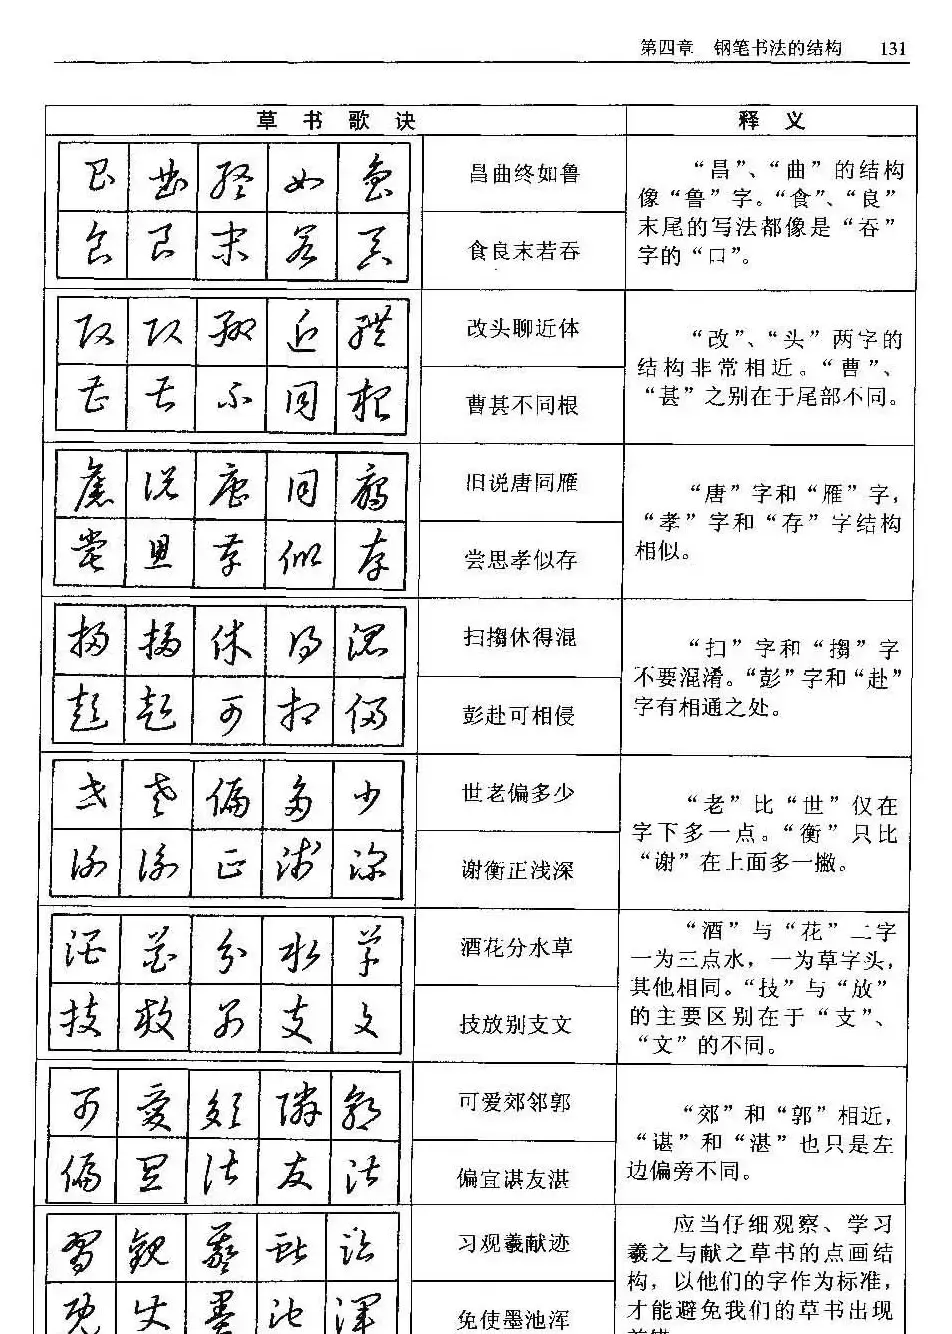 第四章 钢笔书法的结构 131
草书歌诀 释义
昌曲终如鲁
食良末若吞
“昌”、“曲”的结构
像“鲁”字。“食”、“良”
末尾的写法都像是“吞”
字的“口”。
改头聊近体
曹甚不同根
“改”、“头”两字的
结构非常相近。“曹”、
“甚”之别在于尾部不同。
旧说唐同雁
尝思孝似存
“唐”字和“雁”字，
“孝”字和“存”字结构
相似。
扫搊休得混
彭赴可相侵
“扫”字和“搊”字
不要混淆。“彭”字和“赴”
字有相通之处。
世老偏多少
谢衡正浅深
“老”比“世”仅在
字下多一点。“衡”只比
“谢”在上面多一撇。
酒花分水草
技放别支文
“酒”与“花”二字
一为三点水，一为草字头，
其他相同。“技”与“放”
的主要区别在于“支”、
“文”的不同。
可爱郊邻郭
偏宜谌友湛
“郊”和“郭”相近，
“谌”和“湛”也只是左
边偏旁不同。
习观羲献迹
免使墨池浑
应当仔细观察、学习
羲之与献之草书的点画结
构，以他们的字作为标准，
才能避免我们的草书出现